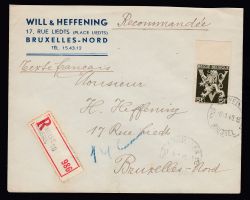 WILL & HEFFENING
17, RUE LIEDTS (PLACE LIEDTS)
BRUXELLES-NORD
TÉL. 15.43.12
Recommandée
Texte français
Monsieur
H. Heffening
17 Rue Liedts
Bruxelles-Nord
R
986